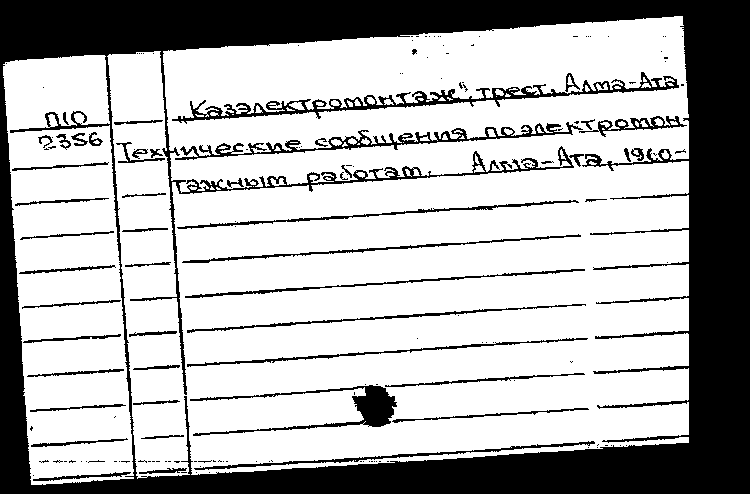 П10
2356
„Казэлектромонтаж", трест. Алма-Ата.
Технические сообщения по электромон-
тажным работам. Алма-Ата, 1960-